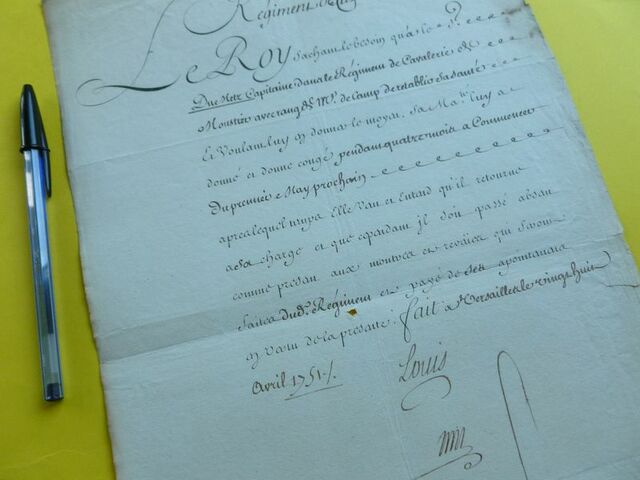 Regiment de
Le Roy Sachant le besoin qu'a le S.r
Du Metz Capitaine dans le Régiment de Cavalerie de
Moustier avec rang de M.e de Camp de retablir sa santé
Et Voulant luy en donner le moyen, Sa Ma.té luy a
donné et donne congé pendant quatre mois a Commencer
Du premier May prochain
apres lequel temps Elle Veut et Entend qu'il retourne
a sa charge et que cependant il soit passé absent
comme présent aux montres et reveües qui Seront
faites dud. Régiment et payé de ses apointemens
en Vertu de la presente. fait a Versailles le vingt huit
Avril 1751./.
Louis